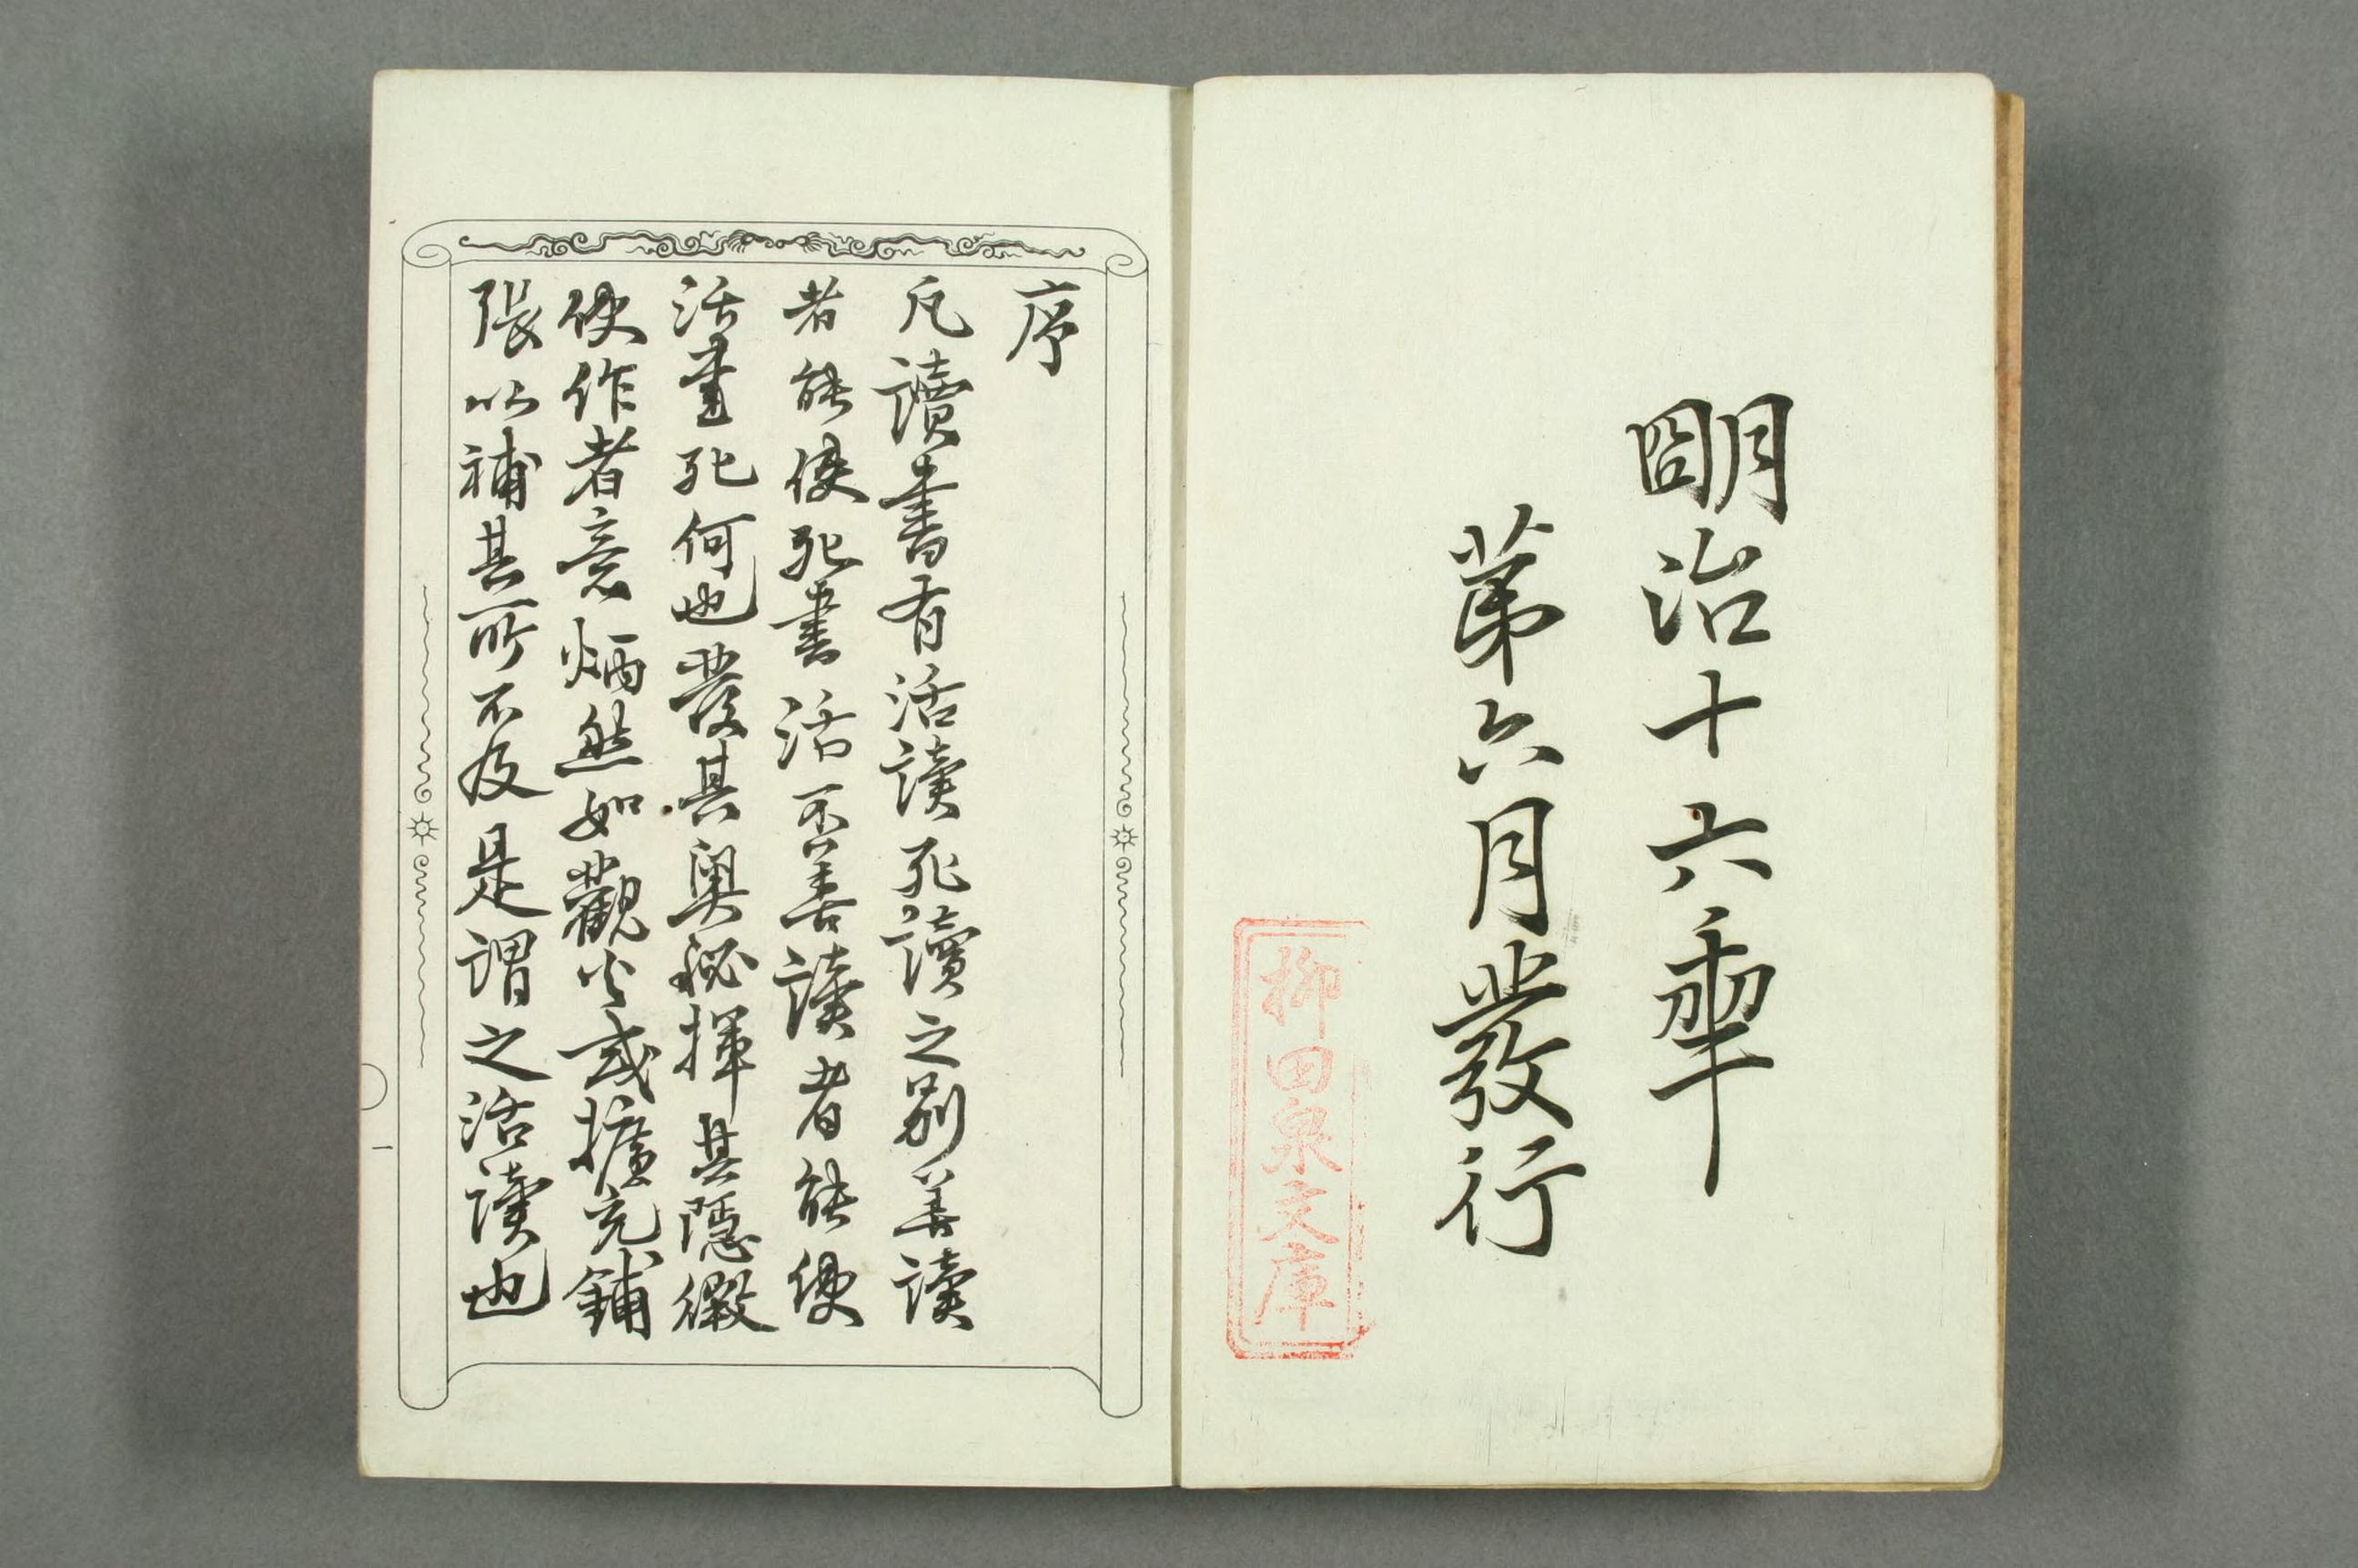 明治十六年
第六月發行
柳田泉文庫
序
凡讀書有活讀死讀之別善讀
者能使死書活不善讀者能使
活書死何也發其奧秘揮其隱微
使作者意炳然如觀火或擴充鋪
張以補其所不及是謂之活讀也
一